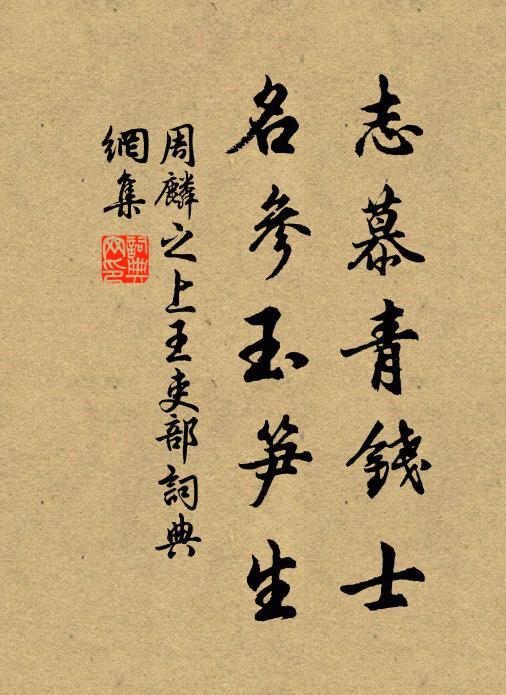 志慕青錢士
名參玉笋生
周麟之上王吏部詞典
網集
詞典网印